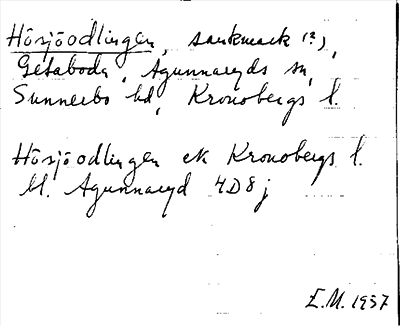 Hörsjöodlingen, sankmark (?),
Getaboda, Agunnaryds sn,
Sunnerbo hd, Kronobergs l.
Hörsjöodlingen ek Kronobergs l.
bl. Agunnaryd 4D8j
E.M. 1957